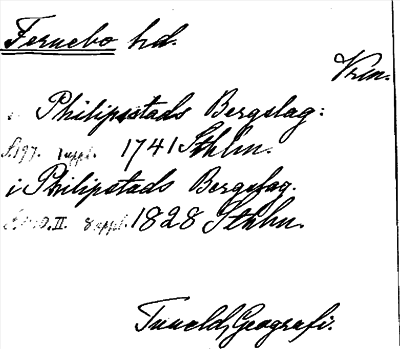 Fernebo hd.
Vrm.
i Philipstads Bergslag:
S. 197. suppl. 1741 Sthlm.
i Philipstads Bergslag.
II. suppl. 1828 Sthlm.
Tuneld, Geografi.